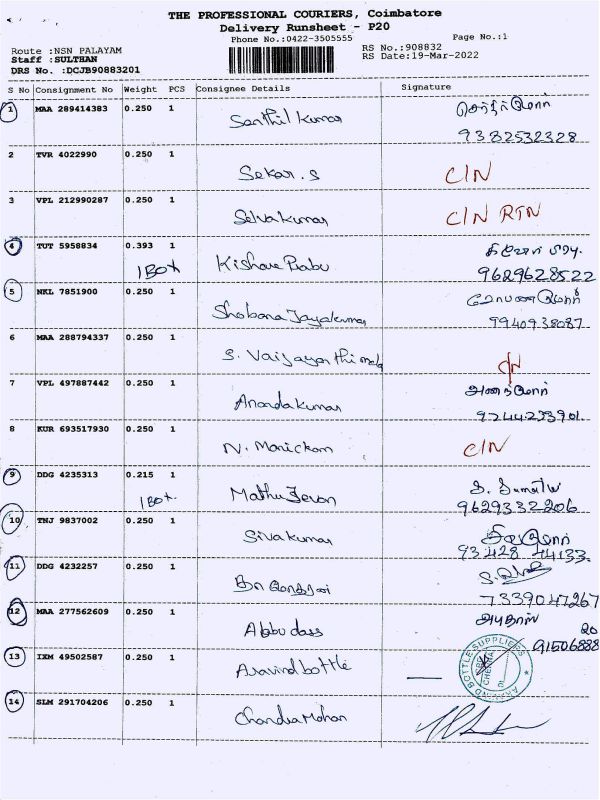 THE PROFESSIONAL COURIERS, Coimbatore
Delivery Runsheet - P20
Phone No.:0422-3505555
Page No.:1
Route :NSN PALAYAM
RS No.:908832
Staff :SULTHAN
RS Date:19-Mar-2022
DRS No. :DCJB90883201
S No Consignment No Weight PCS Consignee Details Signature
1 MAA 289414383 0.250 1 Senthil Kumar செந்தில்குமார்
9382532328
2 TVR 4022990 0.250 1 Sekar.S C/N
3 VPL 212990287 0.250 1 Selvakumar C/N RTN
4 TUT 5958834 0.393 1 Kishore Prabu
1 Box 9629628522
5 NKL 7851900 0.250 1 Shobana Jayakumar
9940938087
6 MAA 288794337 0.250 1 S. Vaijayanthimala C/N
7 VPL 497887442 0.250 1 Anandakumar
9244233901
8 KUR 693517930 0.250 1 N. Manickam C/N
9 DDG 4235313 0.215 1
1 Box 9629332206
10 TNJ 9837002 0.250 1 Sivakumar சிவகுமார்
93428 44133
11 DDG 4232257 0.250 1
7339047267
12 MAA 277562609 0.250 1 Abbudass அபுதாஸ்
20
91506888
13 IXM 49502587 0.250 1 Aravind bottle
ARAVIND BOTTLE SUPPLIERS
14 SLM 291704206 0.250 1 ChandraMohan